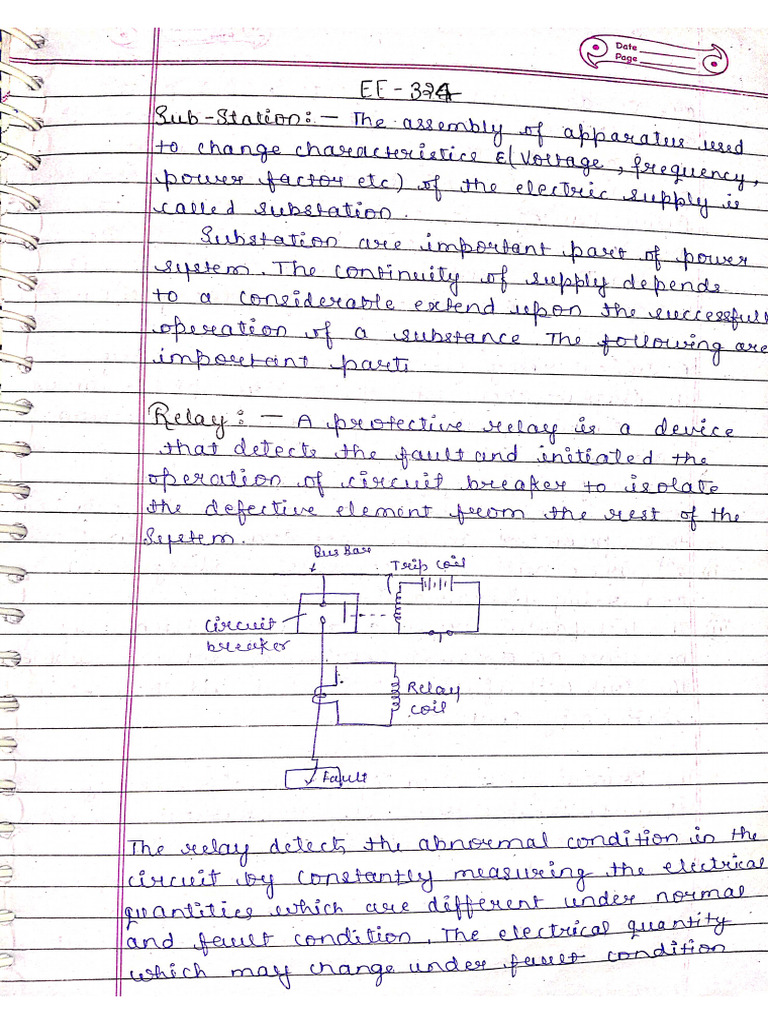 Date
Page
EE-324
Sub-Station:- The assembly of apparatus used
to change characteristics (Voltage, frequency,
power factor etc) of the electric supply is
called substation.
Substation are important part of power
system. The continuity of supply depends
to a considerable extend upon the successfull
operation of a substance. The following are
important parts
Relay:- A protective relay is a device
that detects the fault and initiated the
operation of circuit breaker to isolate
the defective element from the rest of the
System.
Bus Bar
Trip coil
Circuit
breaker
Relay
coil
Fault
The relay detects the abnormal condition in the
circuit by constantly measuring the electrical
quantities which are different under normal
and fault condition. The electrical quantity
which may change under fault condition